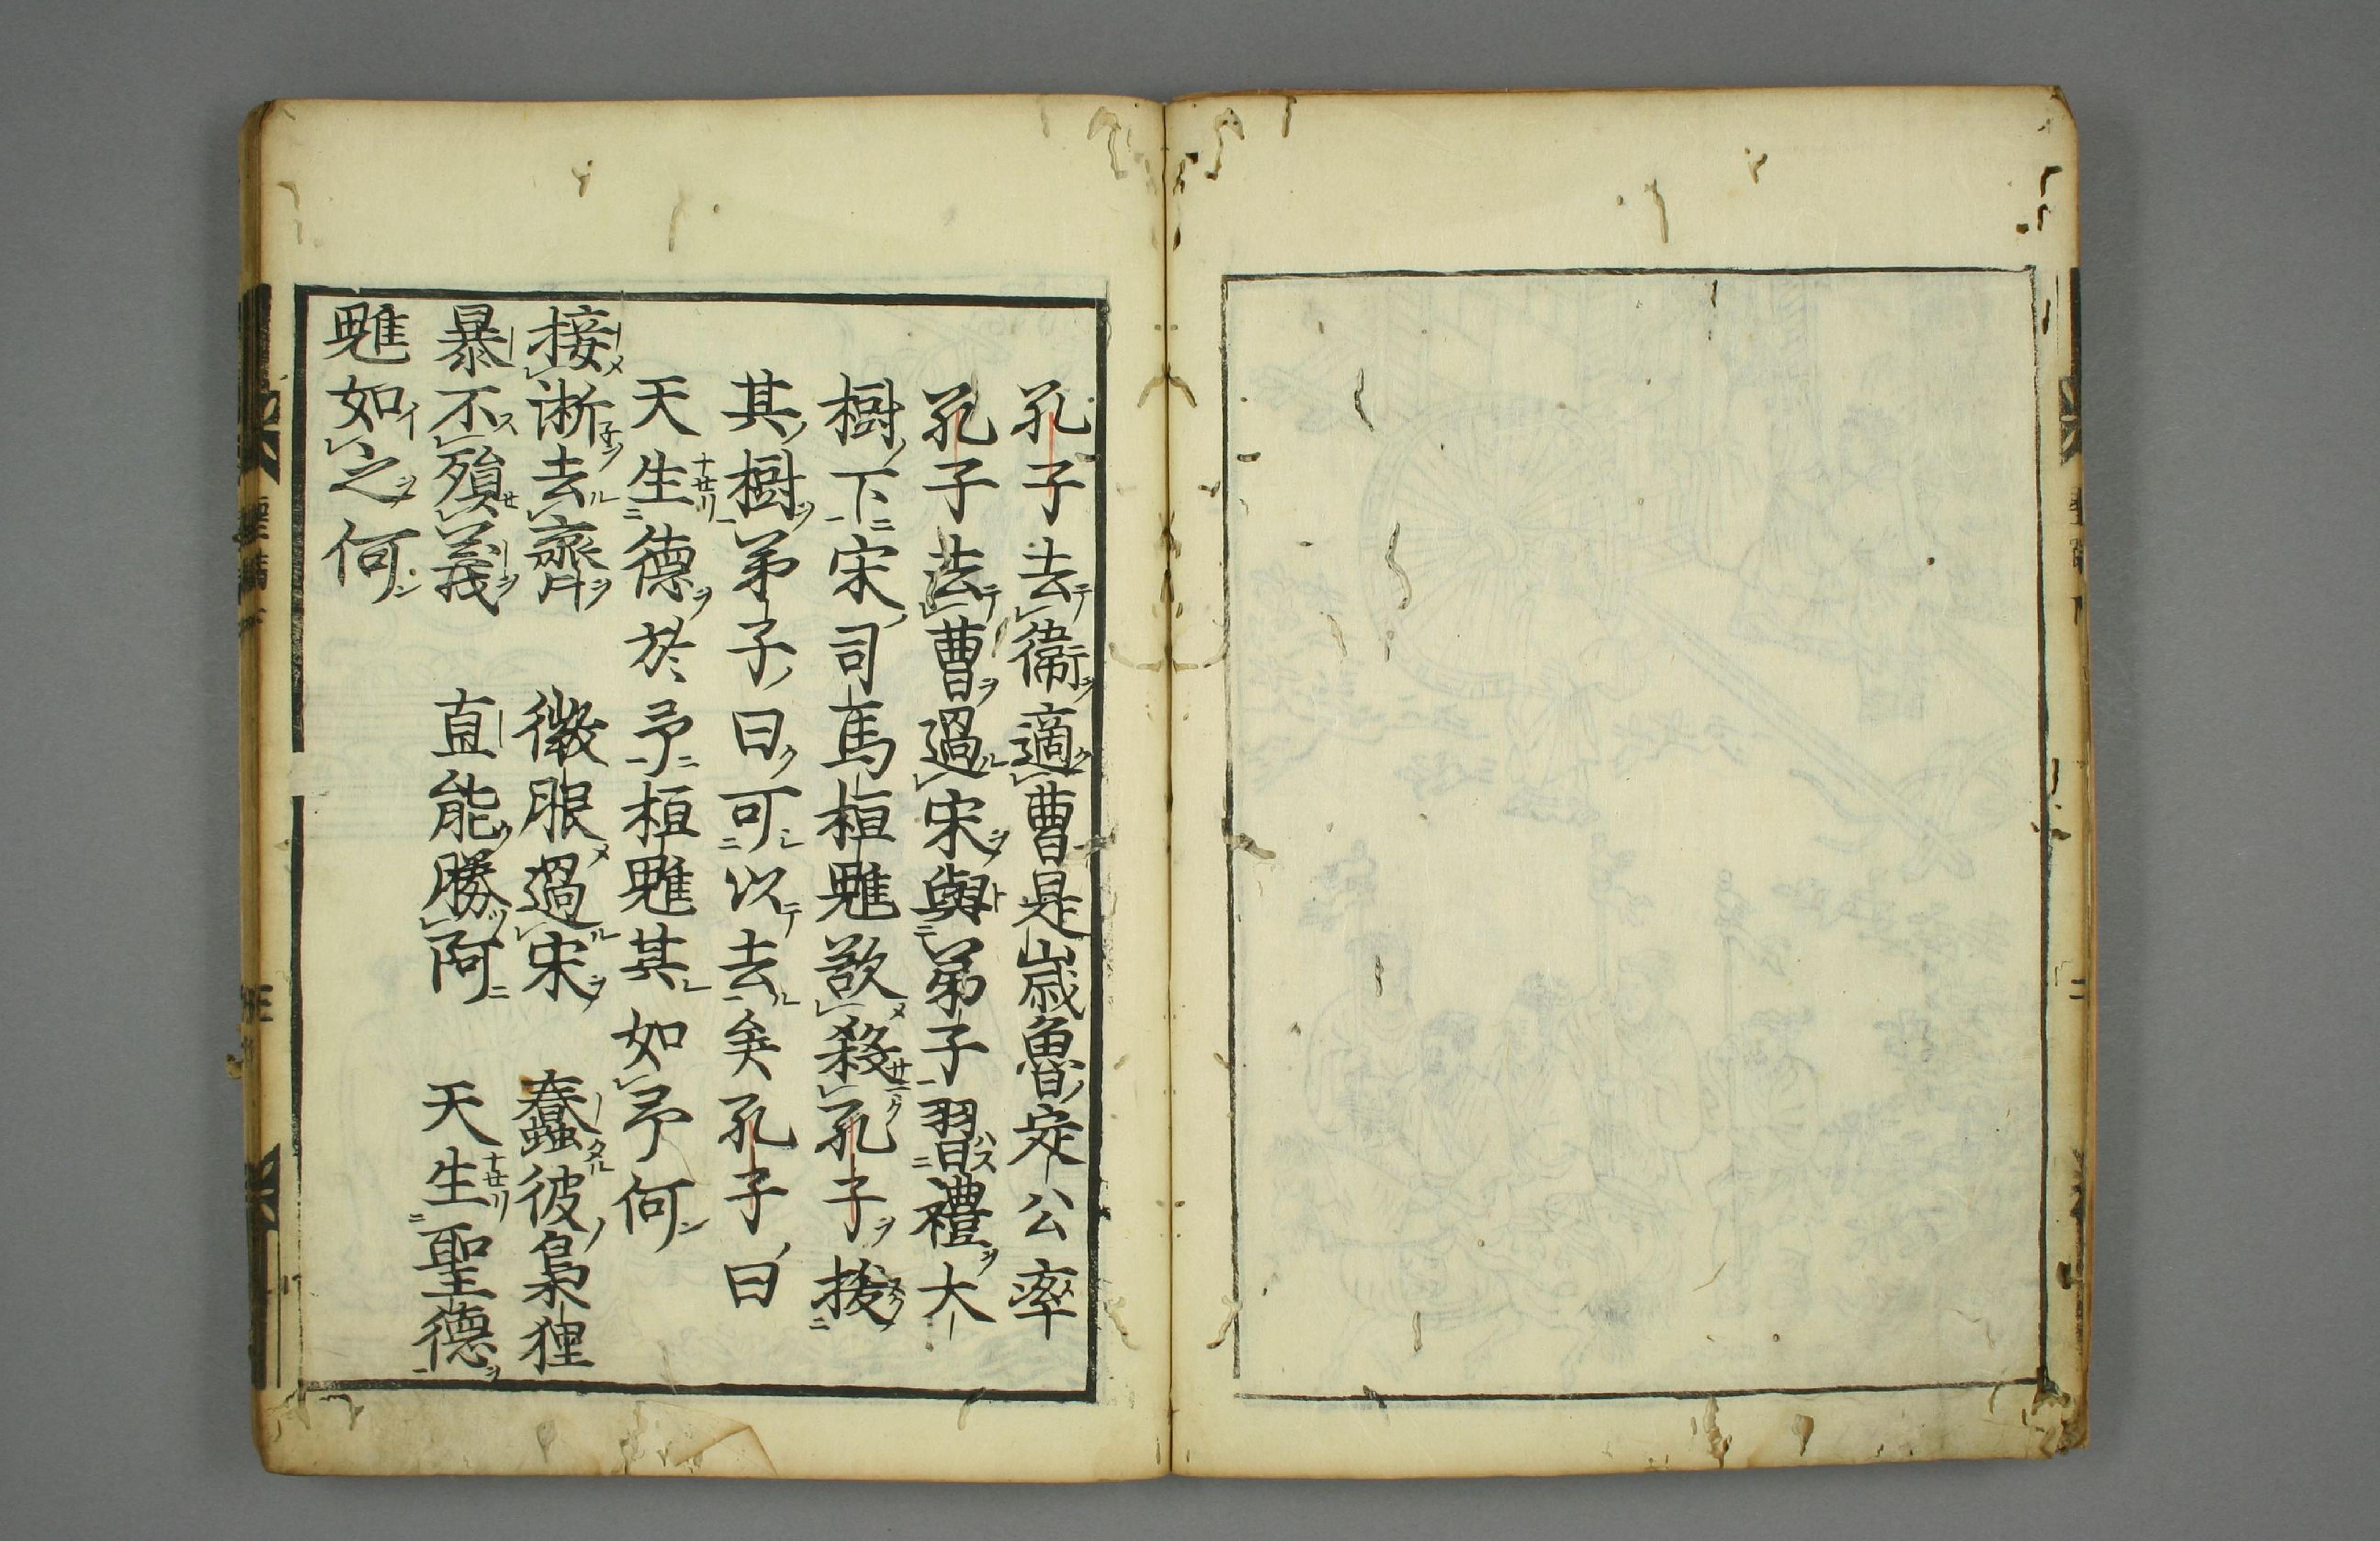 孔子去衞適曹是歲魯定公率
孔子去曹過宋與弟子習禮大
樹下宋司馬桓魋欲殺孔子拔
其樹弟子曰可以去矣孔子曰
天生德於予桓魋其如予何
接淅去齊　微服過宋　蠢彼梟狸
暴不殞義　直能勝阿　天生聖德
魋如之何